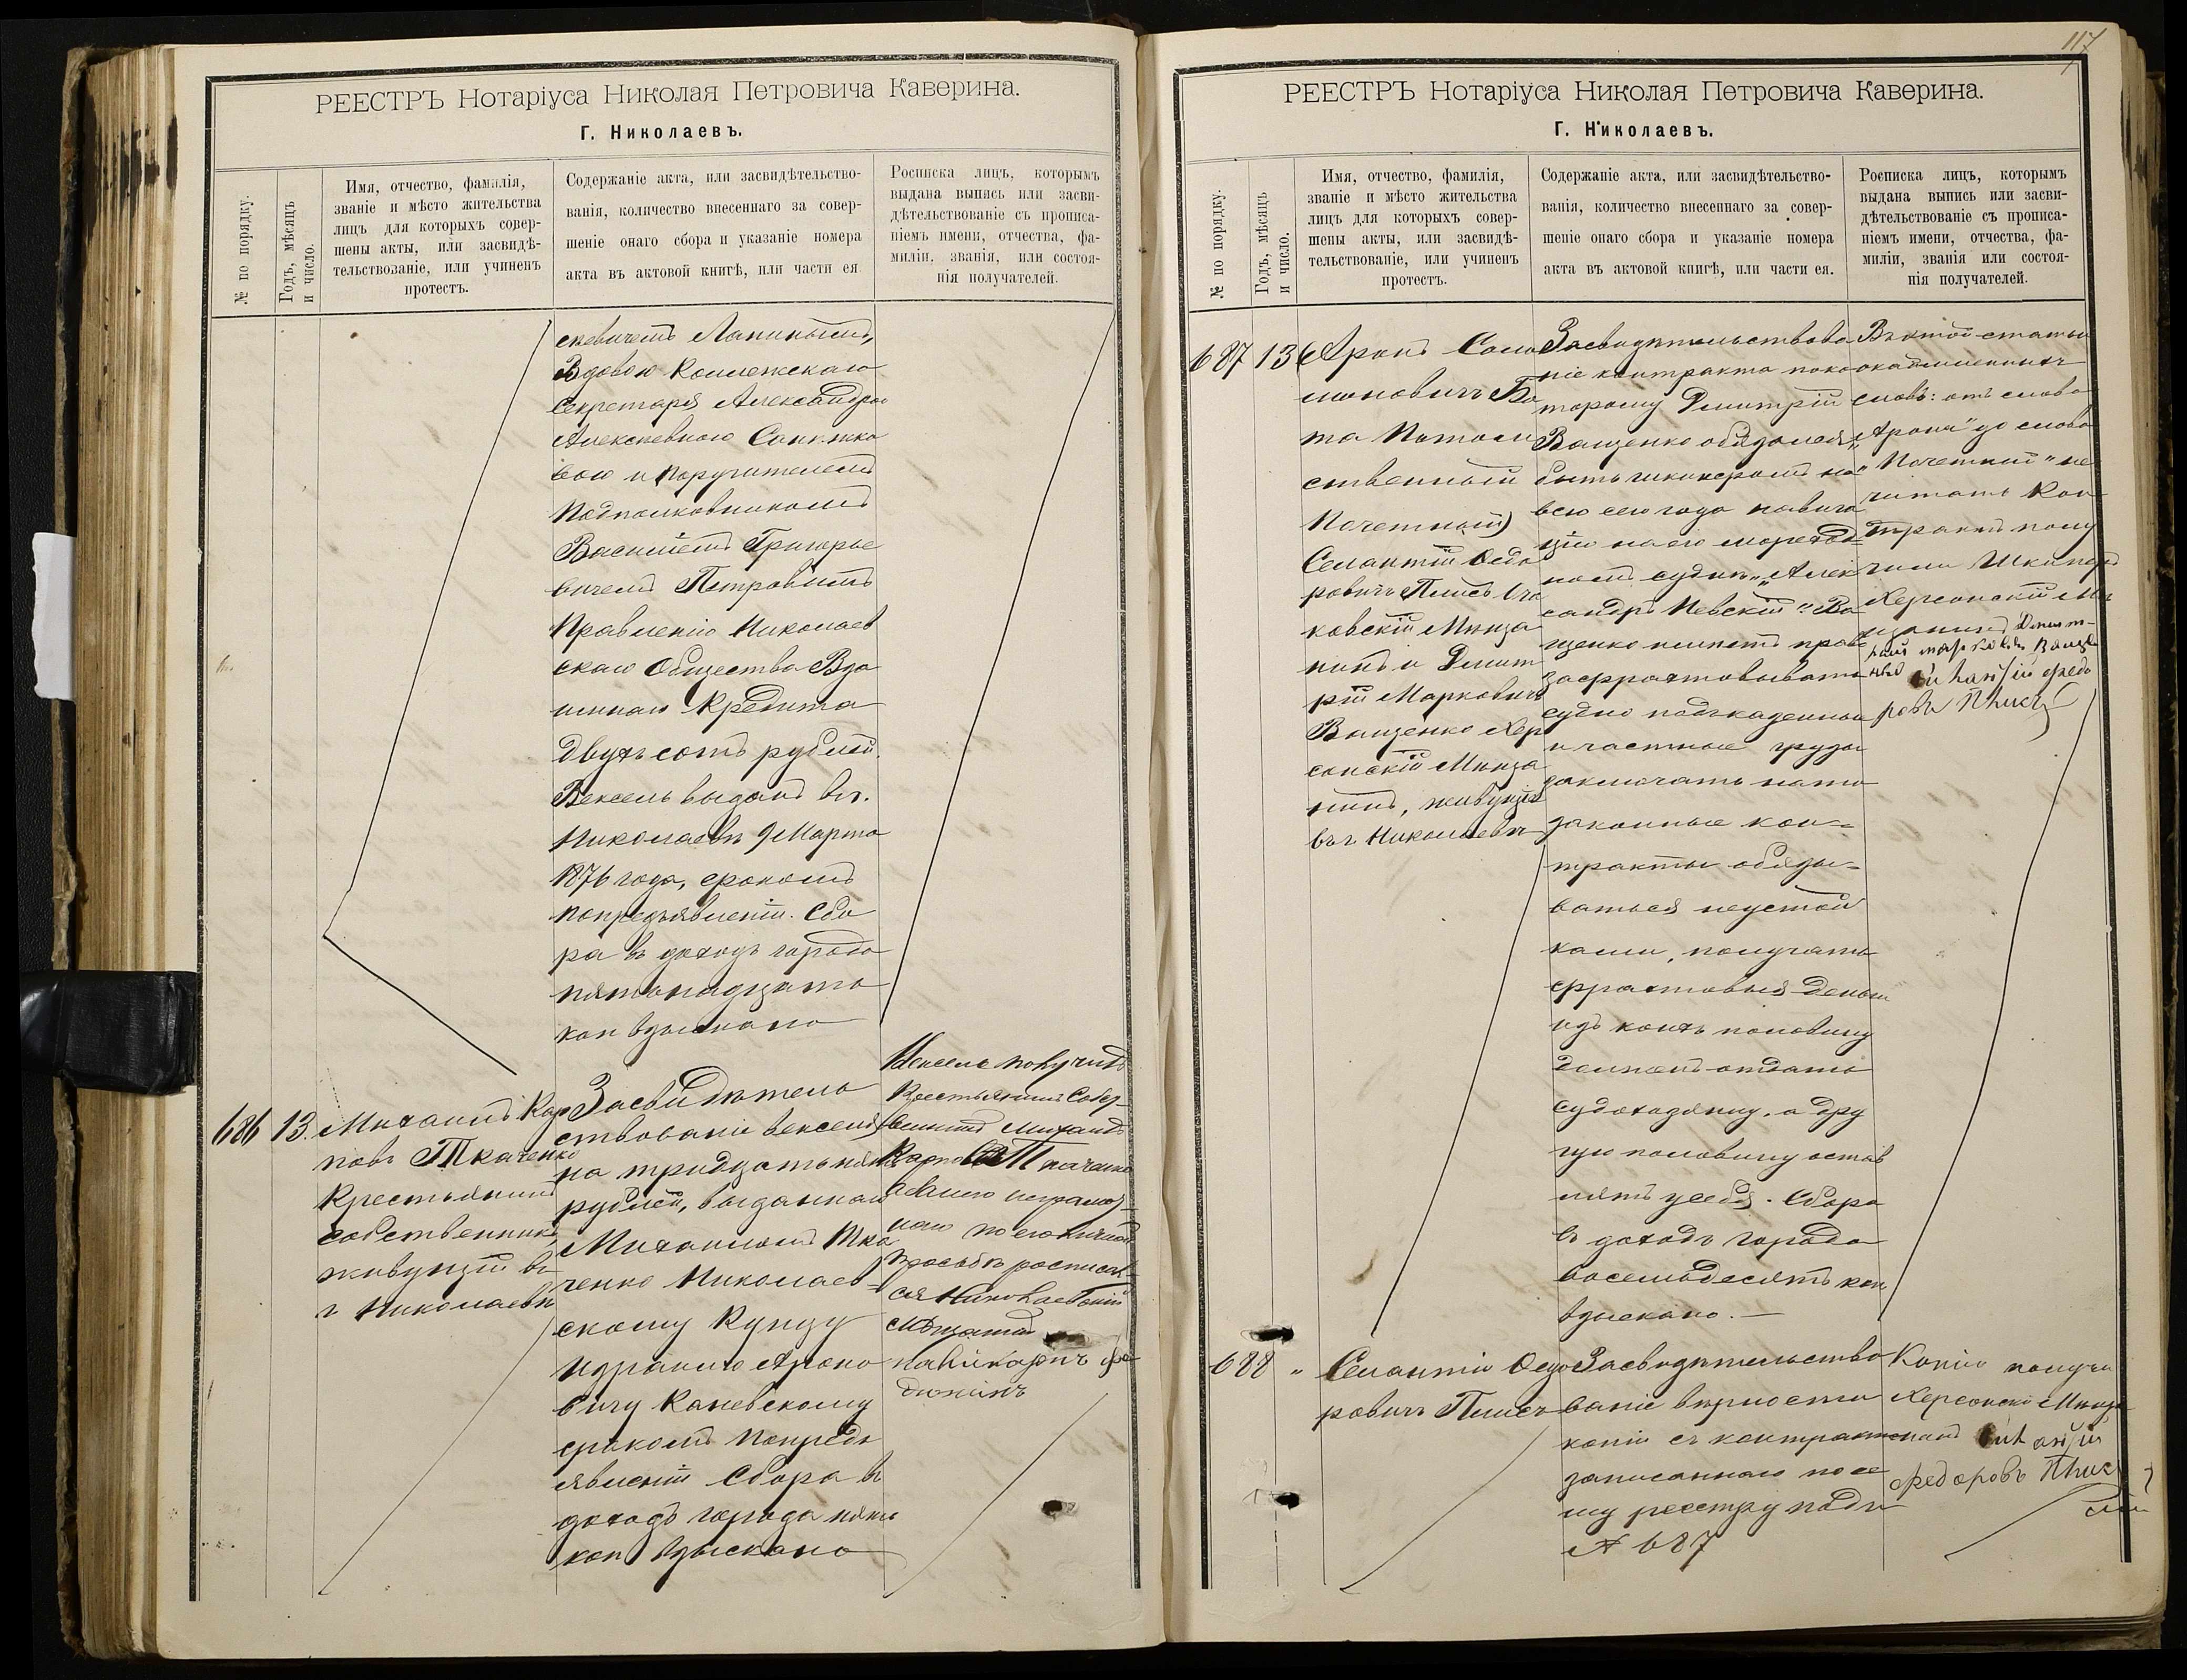 РЕЕСТРЪ Нотаріуса Николая Петровича Каверина.
Г. Николаевъ.
№ по порядку.
Годъ, мѣсяцъ
и число.
Имя, отчество, фамилія,
званіе и мѣсто жительства
лицъ для которыхъ совер-
шены акты, или засвидѣ-
тельствованіе, или учиненъ
протестъ.
Содержаніе акта, или засвидѣтельство-
ванія, количество внесеннаго за совер-
шеніе онаго сбора и указаніе номера
акта въ актовой книгѣ, или части ея
Росписка лицъ, которымъ
выдана выпись или засви-
дѣтельствованіе съ прописа-
ніемъ имени, отчества, фа-
миліи, званія, или состоя-
нія получателей.
скевичемъ Лапинымъ,
Вдовою Коллежскаго
Секретаря Александрою
Алексѣевною
вою и Поручителемъ
Подполковникомъ
Василіемъ Григорье
вичемъ Петровымъ
Правленію Николаев
скаго Общества Вза
имнаго Кредита
двухъ сотъ рублей.
Вексель выданъ въ г.
Николаевѣ 9 Марта
1876 года, срокомъ
по предъявленіи. Сбо
ра въ доходъ города
пятьнадцать
коп взыскано
686
13.
Михаилъ Кар
повъ Ткаченко
Крестьянинъ
собственникъ,
живущій въ
г Николаевѣ
Засвидѣтель
ствованіе векселя
на тридцать пять
рублей, выданнаго
Михаиломъ Тка
ченко Николаев-
скому Купцу
Израилю Ароно
вичу Каневскому
срокомъ по предъ
явленіи Сбора въ
доходъ города пять
коп взыскано
Вексель получилъ
Крестьянинъ Собст
венникъ Михаилъ
Карповъ Ткаченко
а вмѣсто неграмот
наго по его личной
просьбѣ росписал
ся Николаевскій
Мѣщанинъ
РЕЕСТРЪ Нотаріуса Николая Петровича Каверина.
Г. Николаевъ.
117
№ по порядку.
Годъ, мѣсяцъ
и число.
Имя, отчество, фамилія,
званіе и мѣсто жительства
лицъ для которыхъ совер-
шены акты, или засвидѣ-
тельствованіе, или учиненъ
протестъ.
Содержаніе акта, или засвидѣтельство-
ванія, количество внесеннаго за совер-
шеніе онаго сбора и указаніе номера
акта въ актовой книгѣ, или части ея.
Росписка лицъ, которымъ
выдана выпись или засви-
дѣтельствованіе съ прописа-
ніемъ имени, отчества, фа-
миліи, званія или состоя-
нія получателей.
687
13
(Аронъ Соло
моновичъ Ба
та Потом
ственный
Почетный)
Селантій Ѳедо
ровичъ Плисъ Оча
ковскій Мѣща
нинъ и Дмит
рій Марковичъ
Ващенко Хер
сонскій Мѣща
нинъ, живущіе
въ г. Николаевѣ
Засвидѣтельствова
ніе контракта по ко
торому Дмитрій
Ващенко обязался
быть шкиперомъ на
всю сего года навига
цію на его мореход-
номъ суднѣ „Алек
сандръ Невскій" Ва
щенко имѣетъ право
зафрахтовывать
судно подъ казенные
и частные грузы
заключать на то
законные кон-
тракты обязы-
ваться неустой
ками, получать
фрахтовыя деньги
изъ коихъ половину
долженъ отдать
судохозяину, а дру
гую половину остав
лять у себя. Сбора
въ доходъ города
восемьдесятъ коп
взыскано. —
Въ этой статьи
окавыченныхъ
словъ: отъ слова
„Арона" до слова
„Почетный" не
читать Кон
трактъ полу
чили Шкиперъ
Херсонскій Мѣ
щанинъ Дмит-
рій Марковъ Ващен
688
"
Селантій Ѳедо
ровичъ Плисъ
Засвидѣтельство
ваніе вѣрности
копіи съ контракта
записаннаго по се
му реестру подъ
№ 687
Копію получи
Херсонскій Мѣща
нинъ
Федоровъ Плис